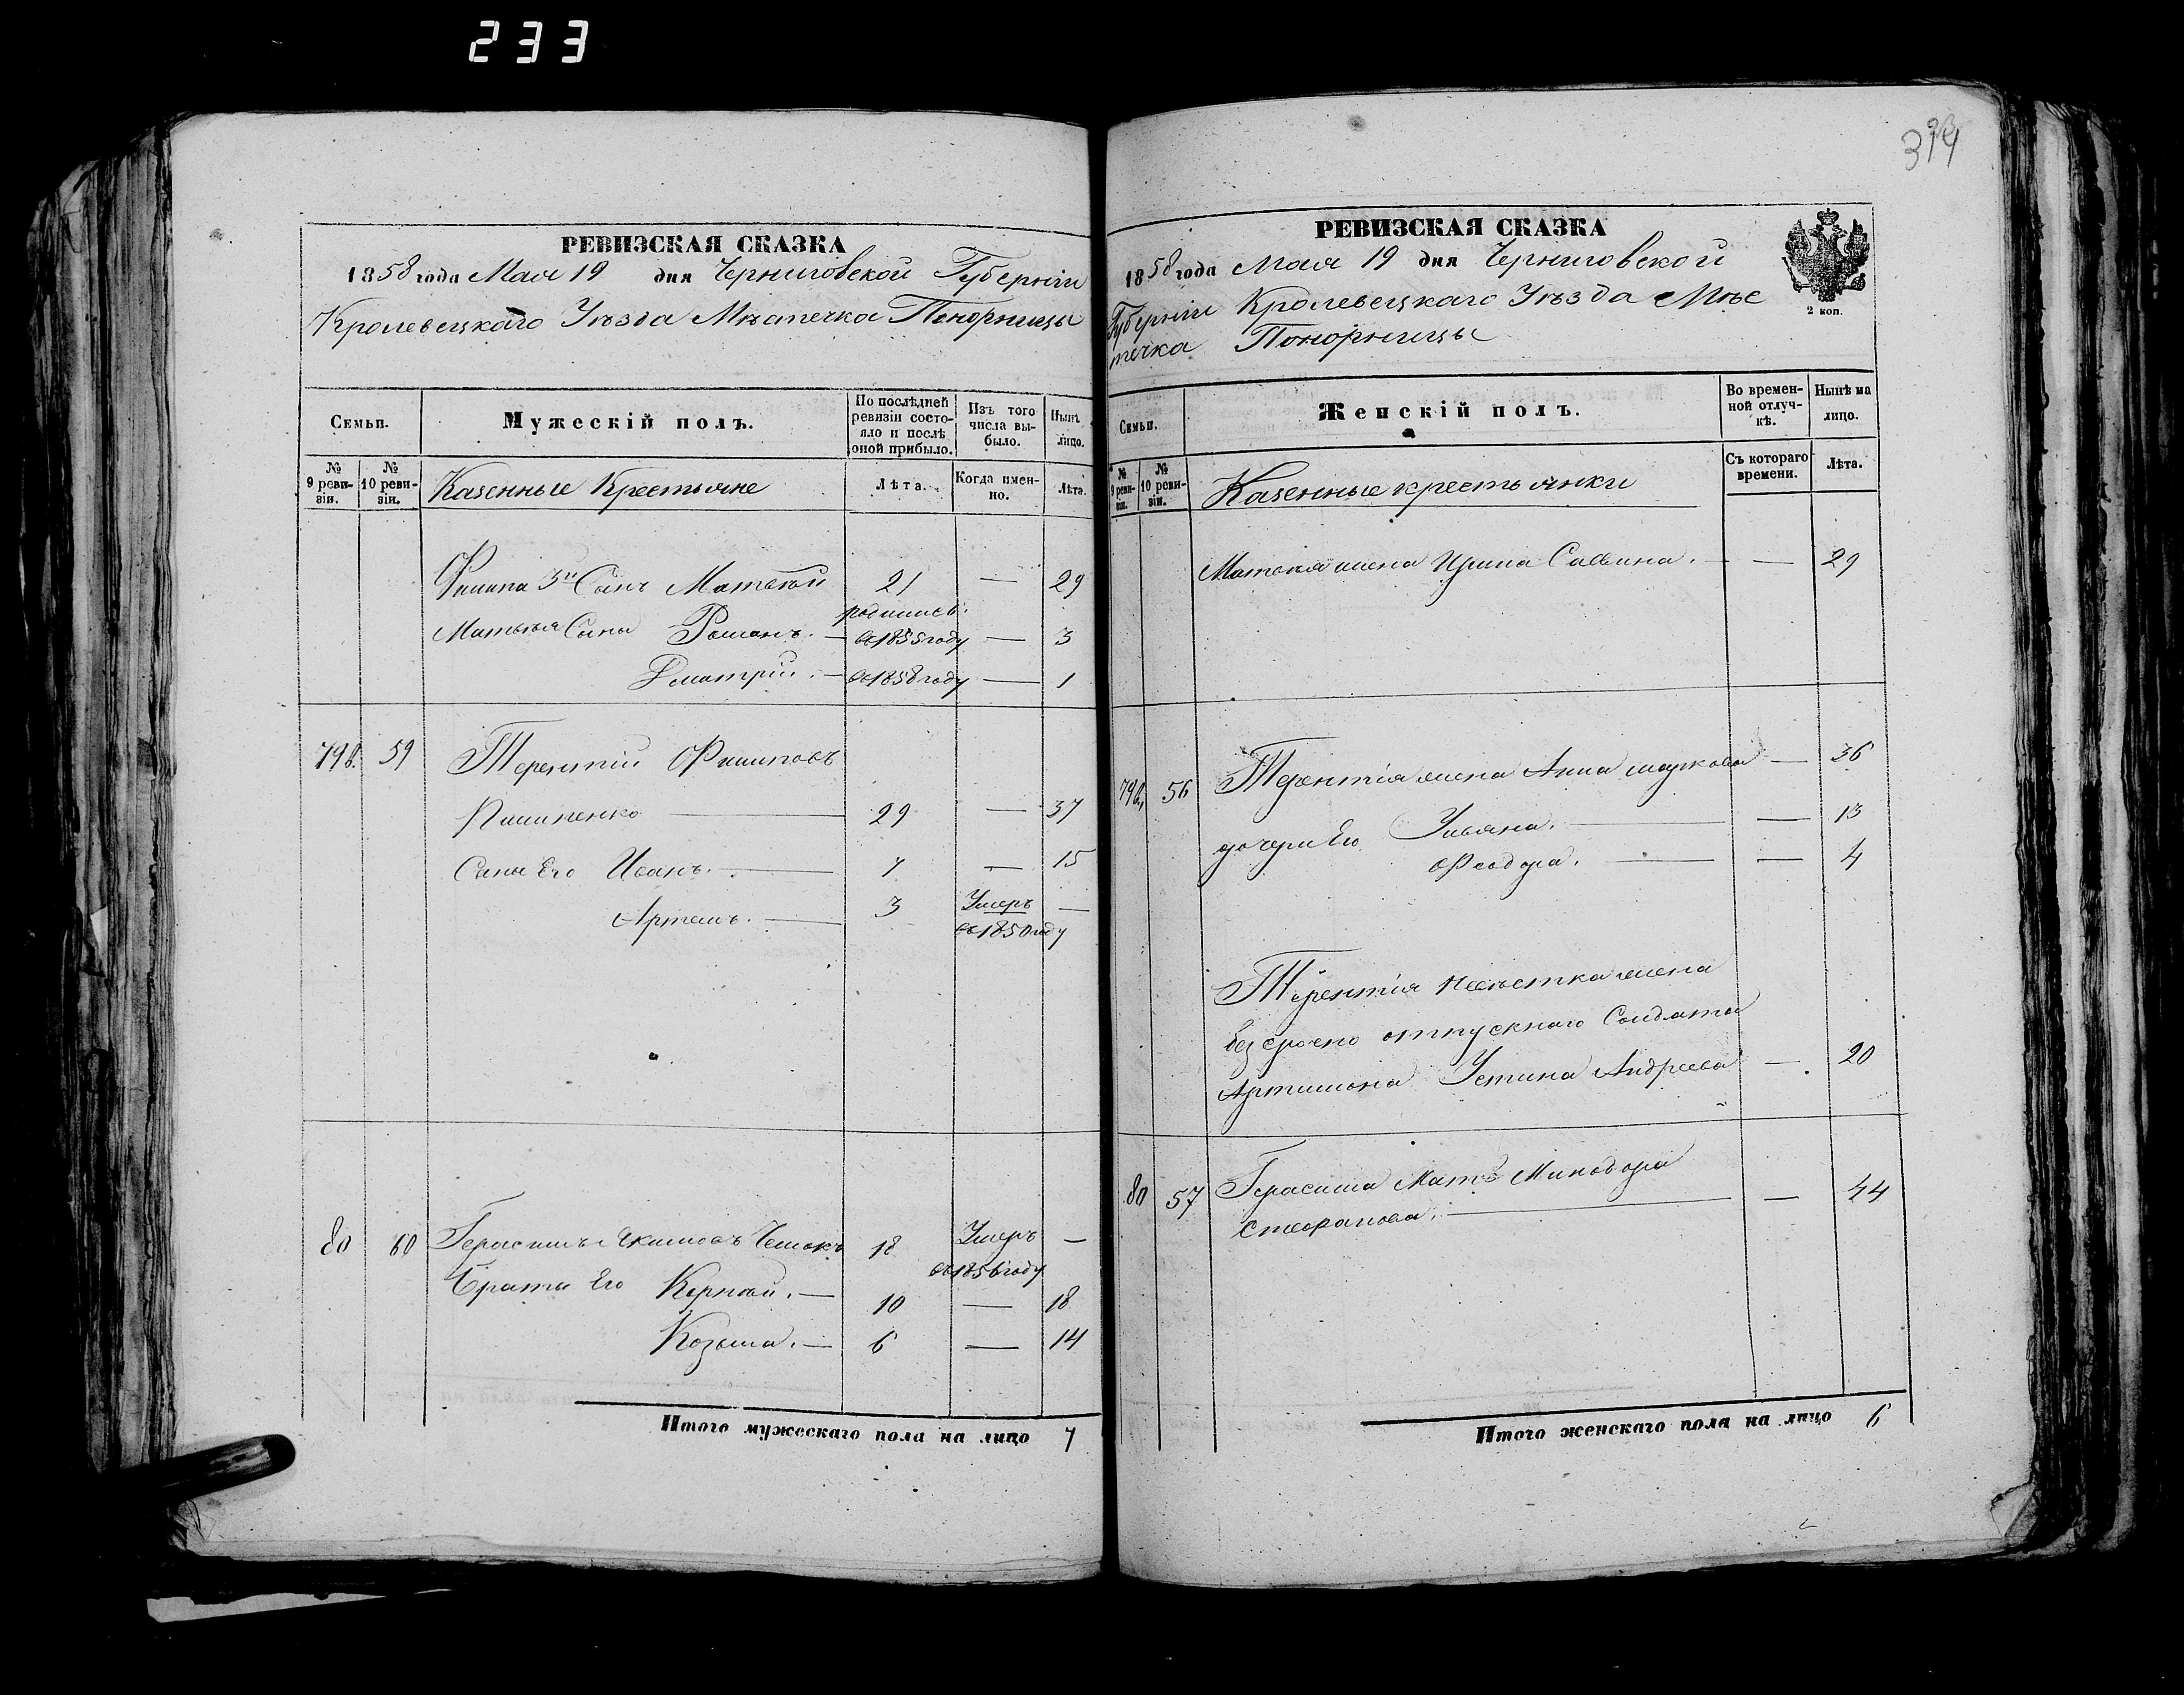 233
394
РЕВИЗСКАЯ СКАЗКА
1858 года Мая 19 дня Черниговской Губерніи
Кролевецкаго Уѣзда Мѣстечка Понорницы
Семьи.
Мужескій полъ.
По послѣдней ревизіи состояло и послѣ оной прибыло.
Изъ того числа выбыло.
Нынѣ лицо.
№ 9 ревизіи.
№ 10 ревизіи.
Казенные Крестьяне
Лѣта.
Когда именно.
Лѣта.
Филипа 3й Сынъ Матвѣй 21 — 29
родился
Матвѣя Сыны Романъ. — въ 1855 году — 3
Дмитрій. — въ 1858 году — 1
79 59 Терентій Филиповъ
Пилипенко 29 — 37
Сыны Его Иванъ. 7 — 15
Артемъ. 3 Умеръ —
въ 1850 году
80 60 Герасимъ Якимовъ 18 Умеръ —
въ 1856 году
Браты Его Корнѣй. — 10 — 18
Козьма. — 6 — 14
Итого мужескаго пола на лицо 7
РЕВИЗСКАЯ СКАЗКА
1858 года Мая 19 дня Черниговской
Губерніи Кролевецкаго Уѣзда Мѣс
течка Понорницы
2 коп.
Семьи.
Женскій полъ.
Во временной отлучкѣ.
Нынѣ на лицо.
№ 9 ревизіи.
№ 10 ревизіи.
Казенные крестьянки
Съ котораго времени.
Лѣта.
Матвѣя жена Ирина Саввина. — — 29
79 56 Терентія жена Анна Маркова — 36
дочери Его Ульяна. — 13
Феодора. — 4
Терентія невѣстка жена
безсрочно отпускнаго Солдата
Артимона Устина Андреева — 20
80 57 Герасима Мать Минодора
Стефанова. — 44
Итого женскаго пола на лицо 6